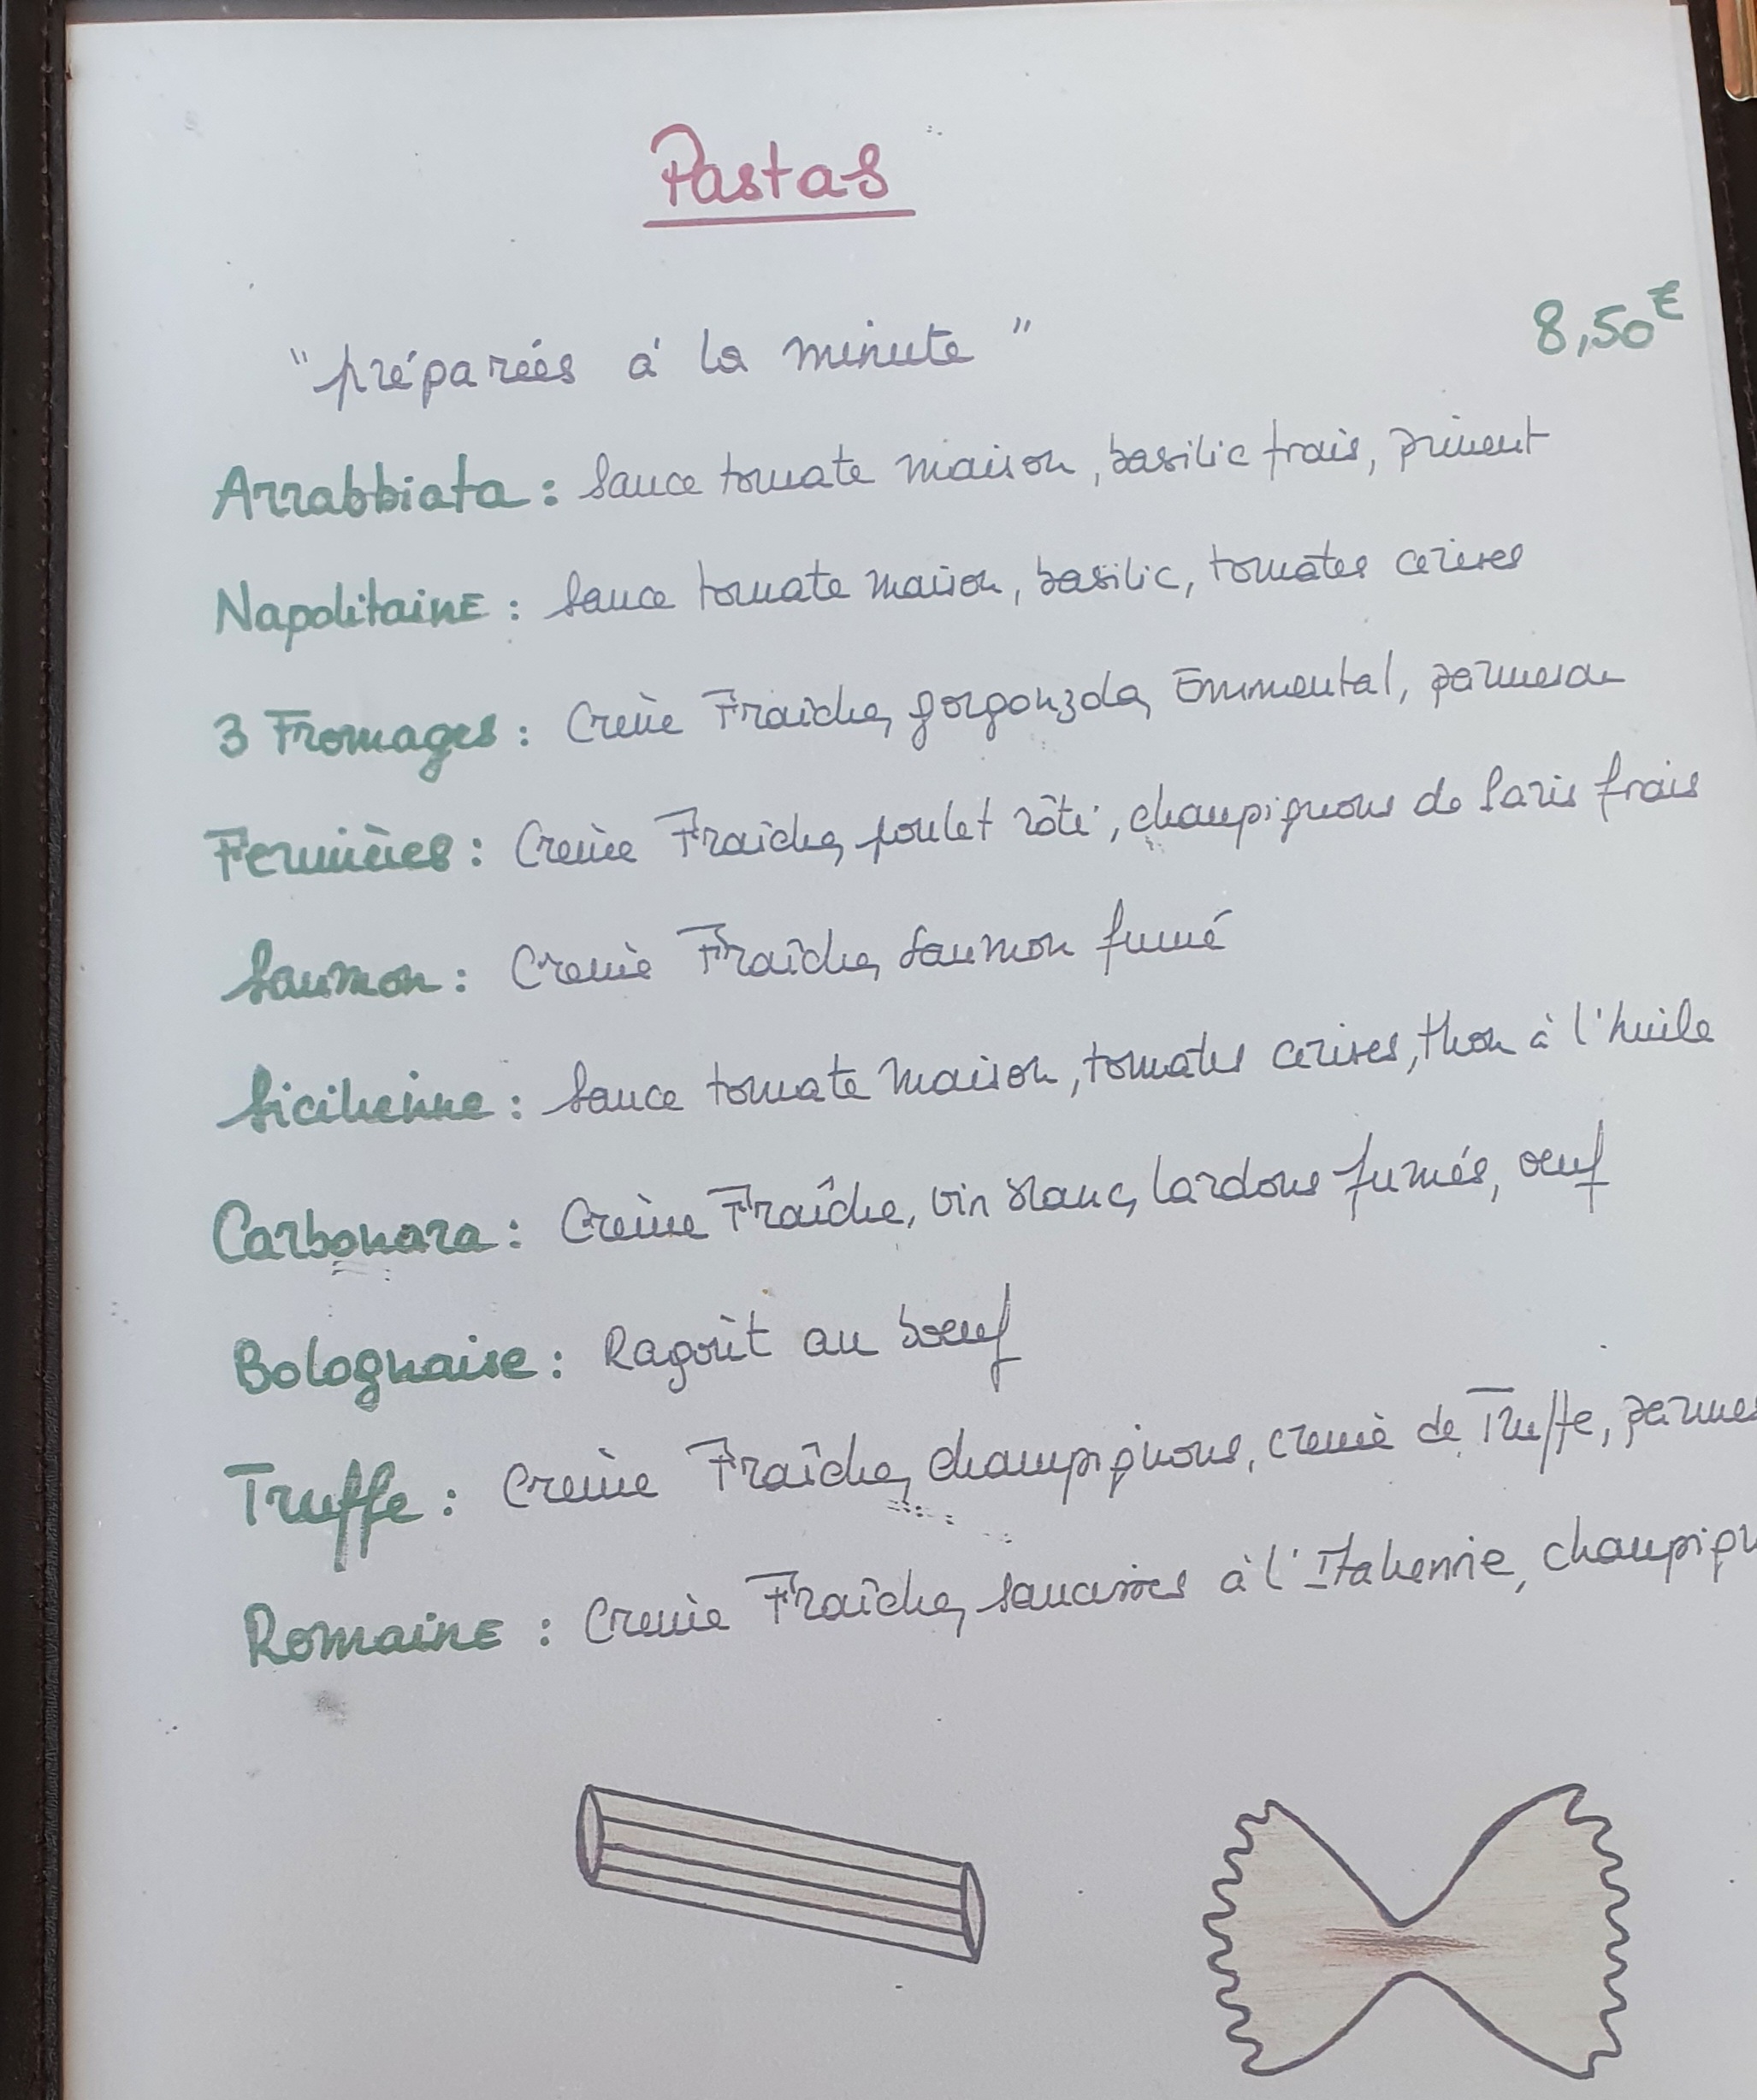 Pastas
"préparées á la minute" 8,50€
Arrabbiata : Sauce tomate maison, basilic frais, piment
Napolitaine : Sauce tomate maison, basilic, tomates cerises
3 Fromages : Crème Fraîche, gorgonzola, Emmental, parmesan
Fermières : Crème Fraîche, poulet rôti, champignons de Paris frais
Saumon : Crème Fraîche, Saumon fumé
Sicilienne : Sauce tomate maison, tomates cerises, thon à l'huile
Carbonara : Crème Fraîche, vin blanc, lardons fumés, oeuf
Bolognaise : Ragoût au boeuf
Truffe : Crème Fraîche, champignons, crème de Truffe, parmes
Romaine : Crème Fraîche, saucisses à l'Italienne, champign